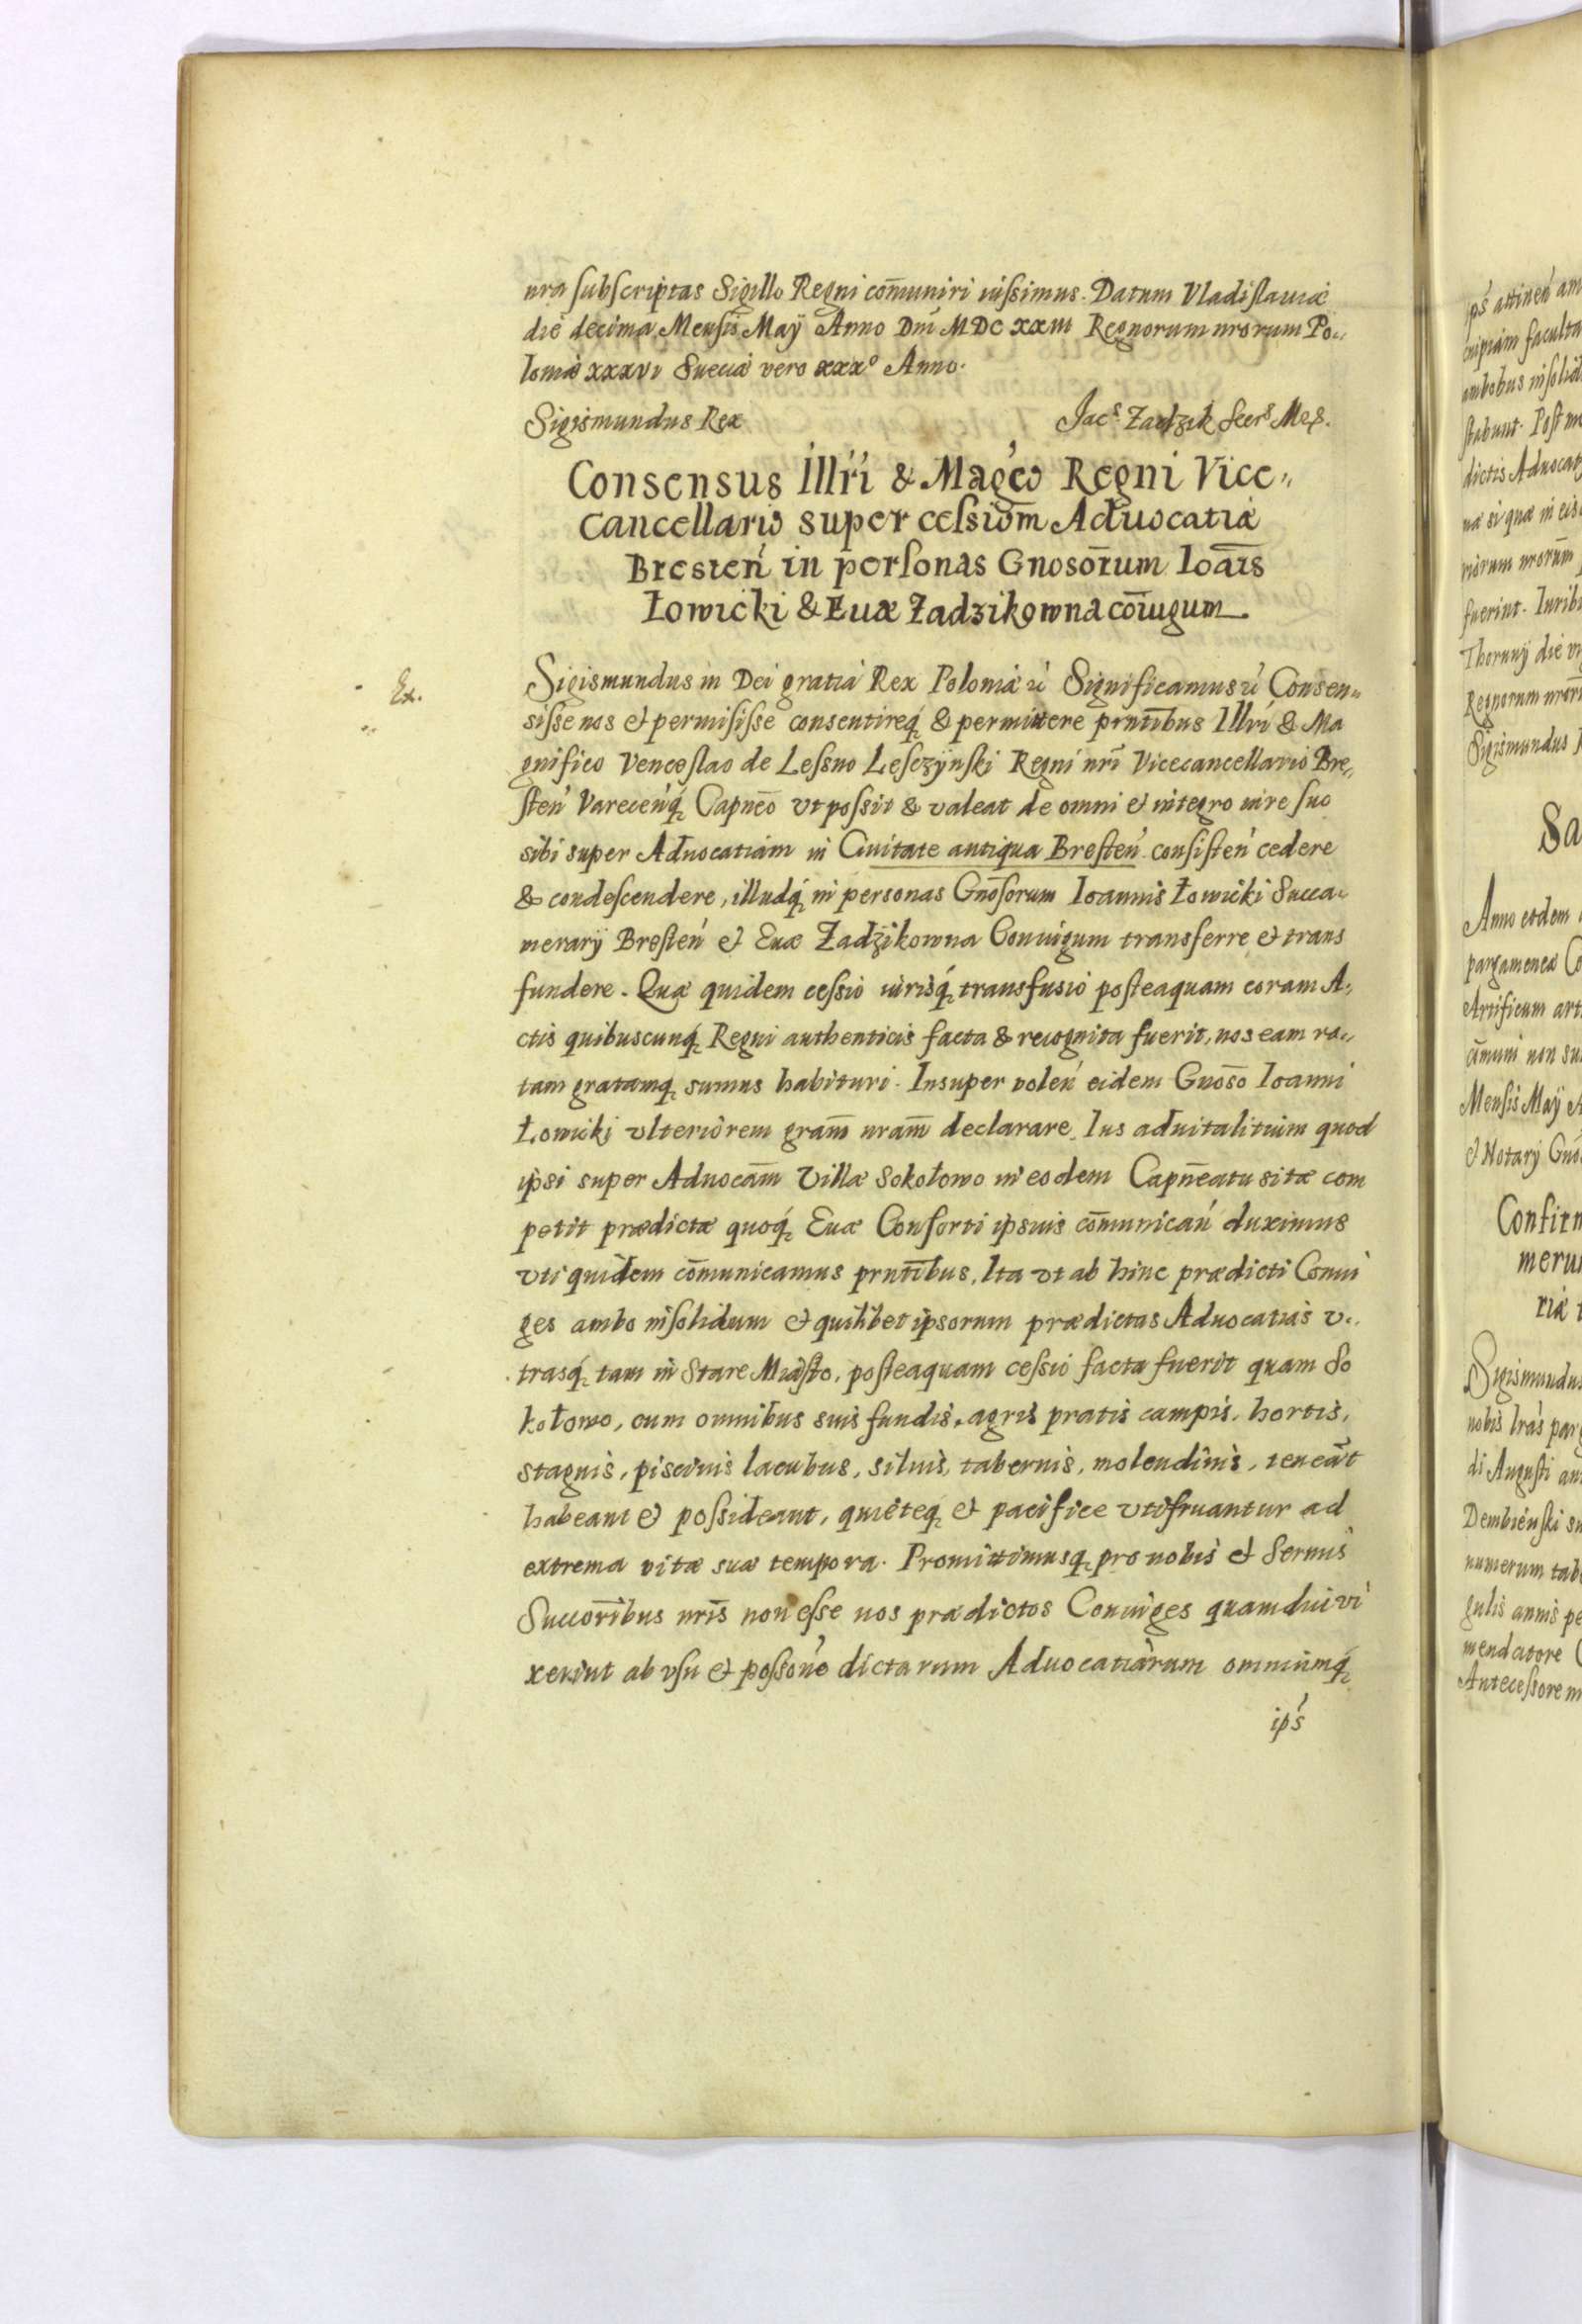 nra subscriptas Sigillo Regni com̄uniri iussimus. Datum Vladislauiæ
die decima Mensis Maÿ Anno Dni MDCXXIII Regnorum nrorum Po„
loniæ XXXVI Sueciæ vero XXXº Anno.
Sigismundus Rex
Jacs Zadzik Secrs Mgs.
Consensus Illri & Magco Regni Vice„
cancellario super cessiom̄ Aduocatiæ
Bresten in personas Gnosōrum Ioāis
Łowicki & Euæ Zadzikowna cōiugum
Ex.
Sigismundus III Dei gratia Rex Poloniæ &c Significamus &c Consen„
sisse nos et permisisse consentireq & permittere prntībus Illri & Ma
gnifico Venceslao de Lessno Lesczÿnski Regni nrī Vicecancellario Bre„
sten Varecenq Capnēo vt possit & valeat de omni et integro iure suo
sibi super Aduocatiam in Ciuitate antiqua Bresten consisten cedere
& condescendere, illudq in personas Gnōsorum Ioannis Łowicki Succa„
merarÿ Bresten et Euæ Zadzikowna Coniugum transferre et trans
fundere. Quæ quidem cessio iurisq transfusio posteaquam coram A„
ctis quibuscunq Regni authenticis facta & recognita fuerit, nos eam ra„
tam gratamq sumus habituri. Insuper volen eidem Gnosō Ioanni
Łowicki vlteriorem gram̄ nram̄ declarare, Ius aduitalitium quod
ipsi super Aduocam̄ Villæ Sokołowo in eodem Capnēatu sitæ com
petit prædictæ quoq Euæ Consorti ipsius com̄unican duximus
vti quidem com̄unicamus prntībus, Ita vt ab hinc prædicti Coniu
ges ambo insolidum et quilibet ipsorum prædictas Aduocatias v„
trasq tam in Stare Miasto, posteaquam cessio facta fuerit quam So
kołowo, cum omnibus suis fundis, agris pratis campis, hortis,
stagnis, piscinis lacubus, siluis, tabernis, molendinis, teneāt
habeant et possideant, quieteq et pacifice vtifruantur ad
extrema vitæ suæ tempora. Promittimusq pro nobis et Sermis
Succorībus nrīs non esse nos prædictos Coniuges quamdiu vi
xerint ab vsu et possone dictarum Aduocatiarum omniumq
ips
ips attinen am
cuipiam faculta
ambobus insolid
stabunt. Post m
dictis Aduocat
næ si quæ in eis
riorum nrorum
fuerint. Iurib
Thorunÿ die vi
Regnorum nror
Sigismundus R
Sa
Anno eodem
pargamenea Co
Artificum art
cōmuni non su
Mensis Maÿ A
et Notarÿ Gno
Confirm
meru
riæ
Sigismundus
nobis lras parg
di Augusti an
Dembienski su
numerum tabe
gulis annis pe
mendatore
Antecessorem